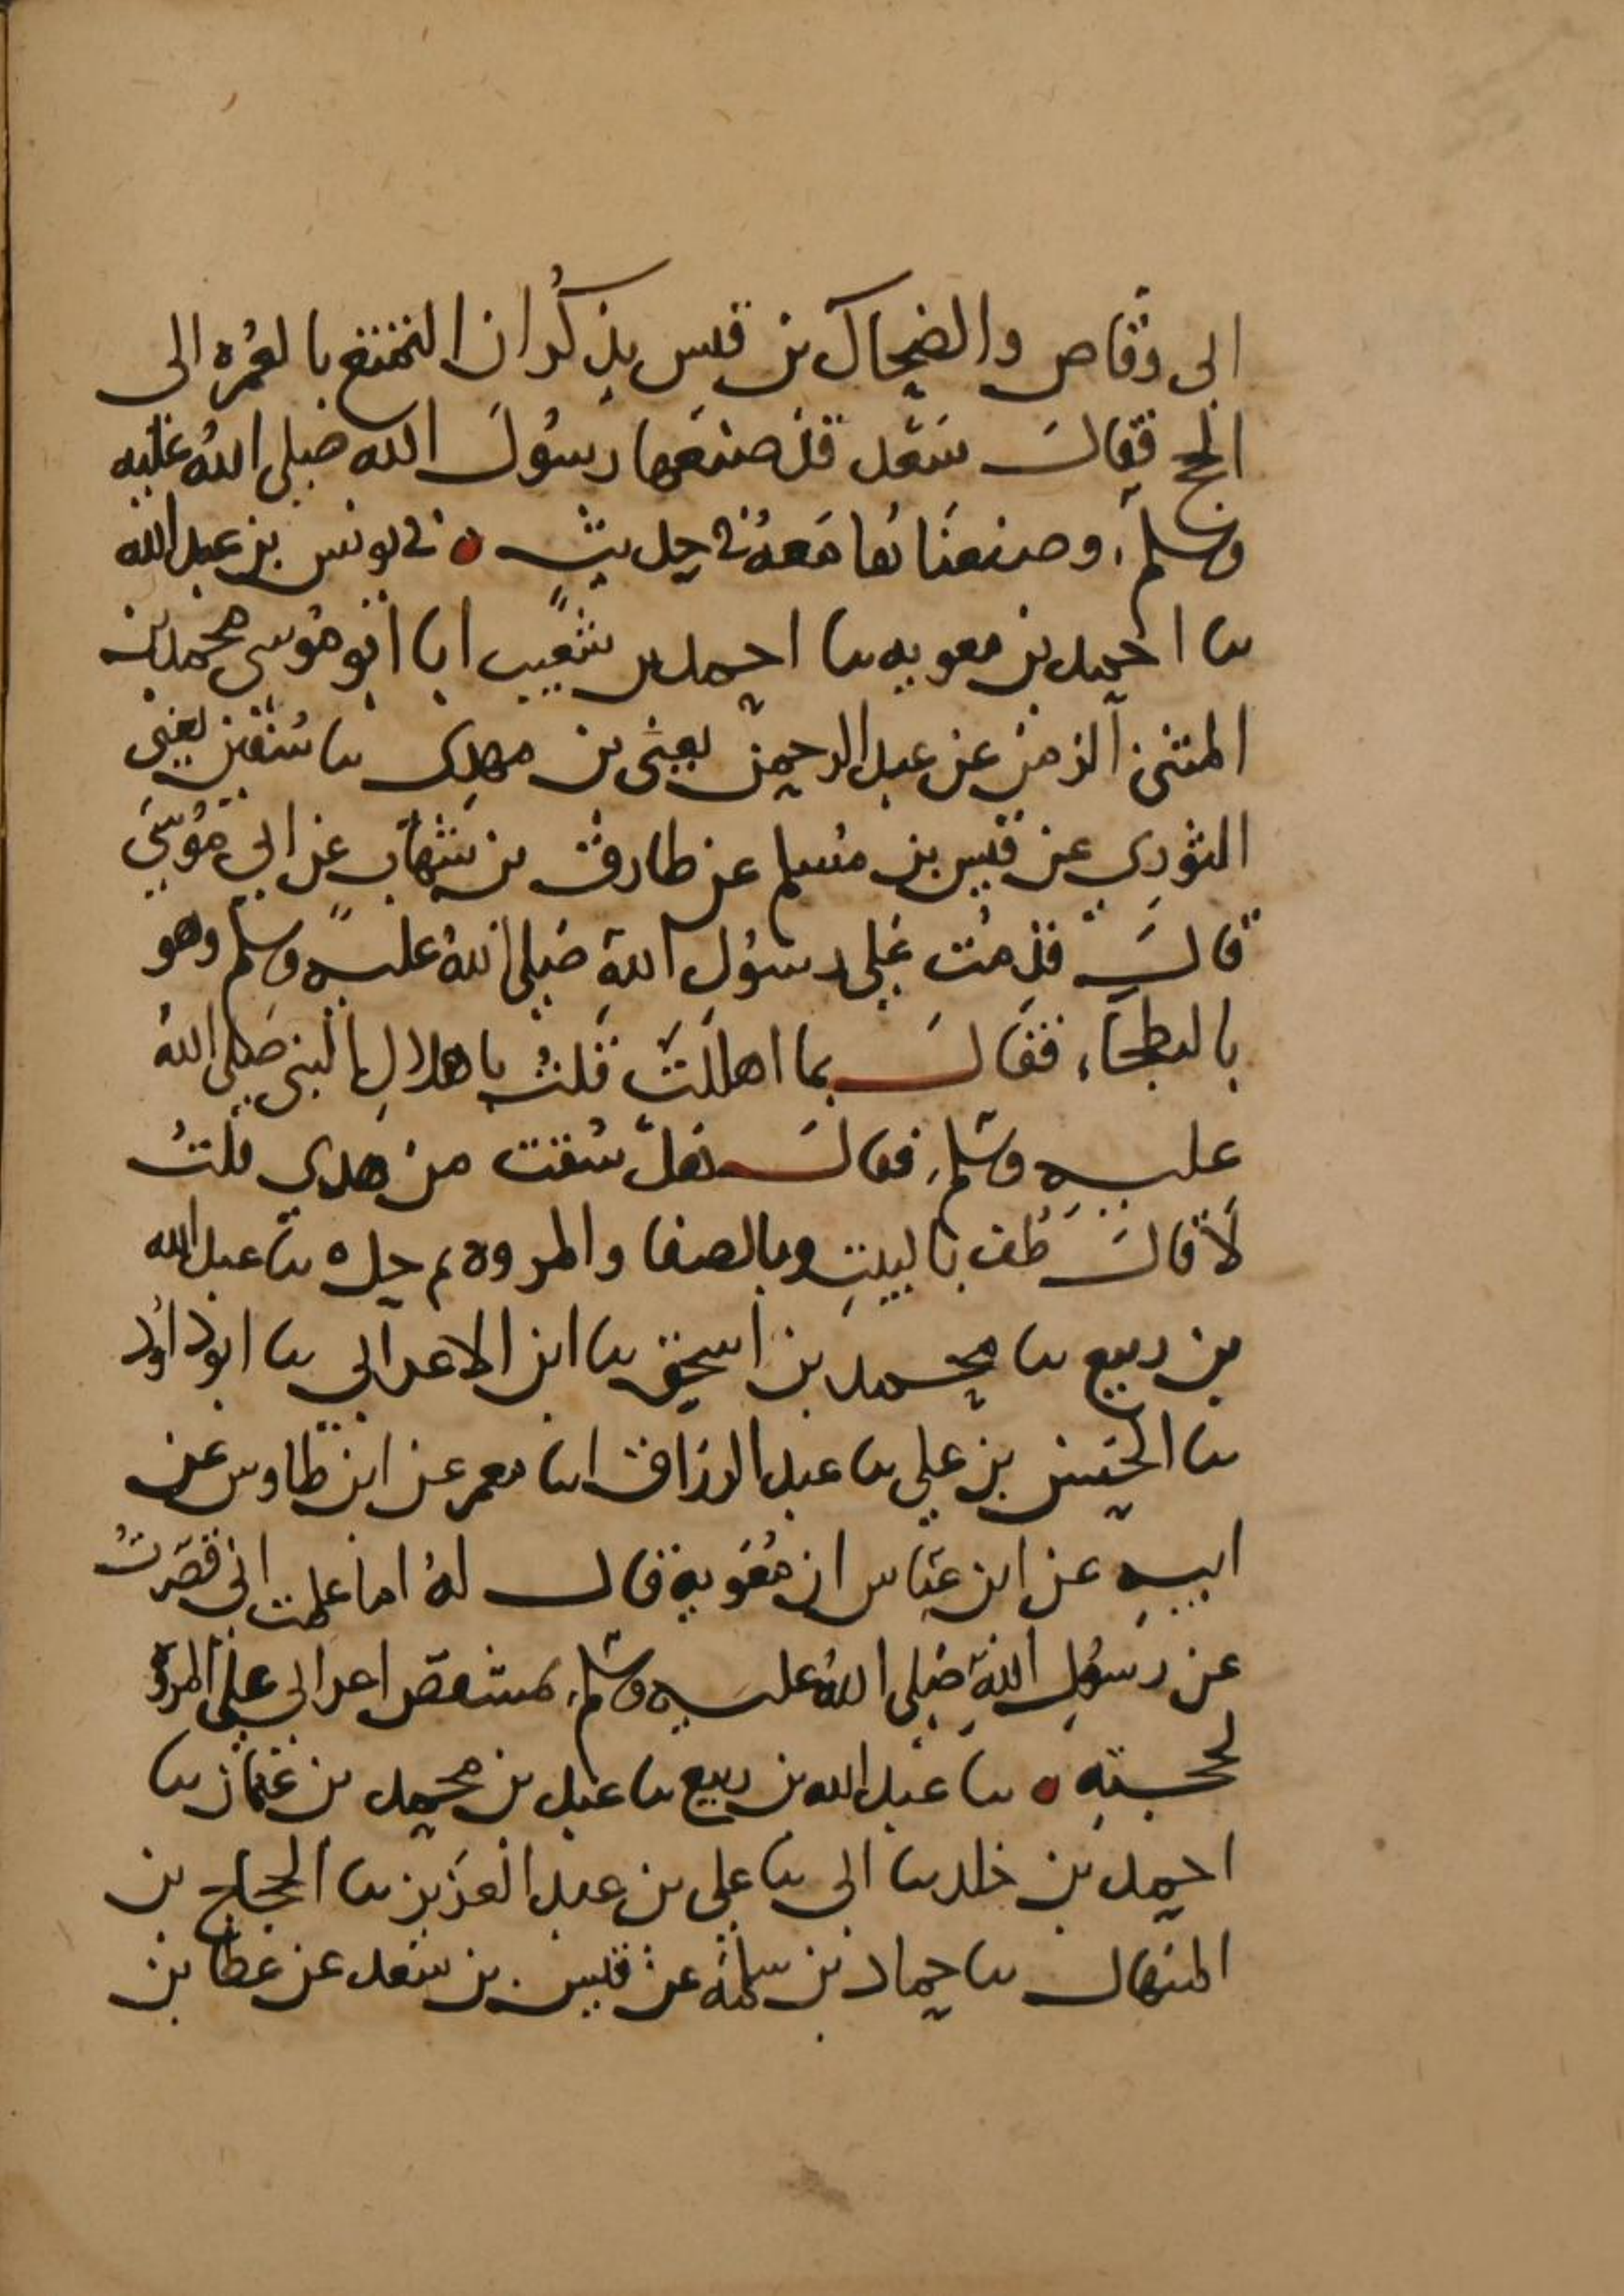 ابى وقاص والضحاك بن قيس يذكران التمتع بالعمره الى
الحج فقال سعد قد صنعها رسول الله صلى الله عليه
وسلم، وصنعناها معه في حديث ٥ نى يونس بن عبد الله
نا احمد بن معويه نا احمد بن شعيب انا ابو موسى محمد بن
المثنى الزمن عن عبد الرحمن يعنى بن مهدى نا سفين يعنى
الثوري عن قيس بن مسلم عن طارق بن شهاب عن ابي موسى
قال قدمت على رسول الله صلى الله عليه وسلم وهو
بالبطحاء، فقال بما اهللت قلت باهلال النبي صلى الله
عليه وسلم، فقال هل سقت من هدي قلت
لا قال طف بالبيت وبالصفا والمروه ثم حل ٥ نا عبد الله
بن ربيع نا محمد بن اسحق نا ابن الاعرابي نا ابو داود
نا الحسن بن علي نا عبد الرزاق انا معمر عن ابن طاوس عن
ابيه عن ابن عباس ان معويه قال له اما علمت انى قصرت
عن رسول الله صلى الله عليه وسلم، بمشقص اعرابي على المروة
لحجته ٥ نا عبد الله بن ربيع نا عبد بن محمد بن عثمان نا
احمد بن خلد نا ابى نا علي بن عبد العزيز نا الحجاج بن
المنهال نا حماد بن سلمة عن قيس بن سعد عن عطا بن